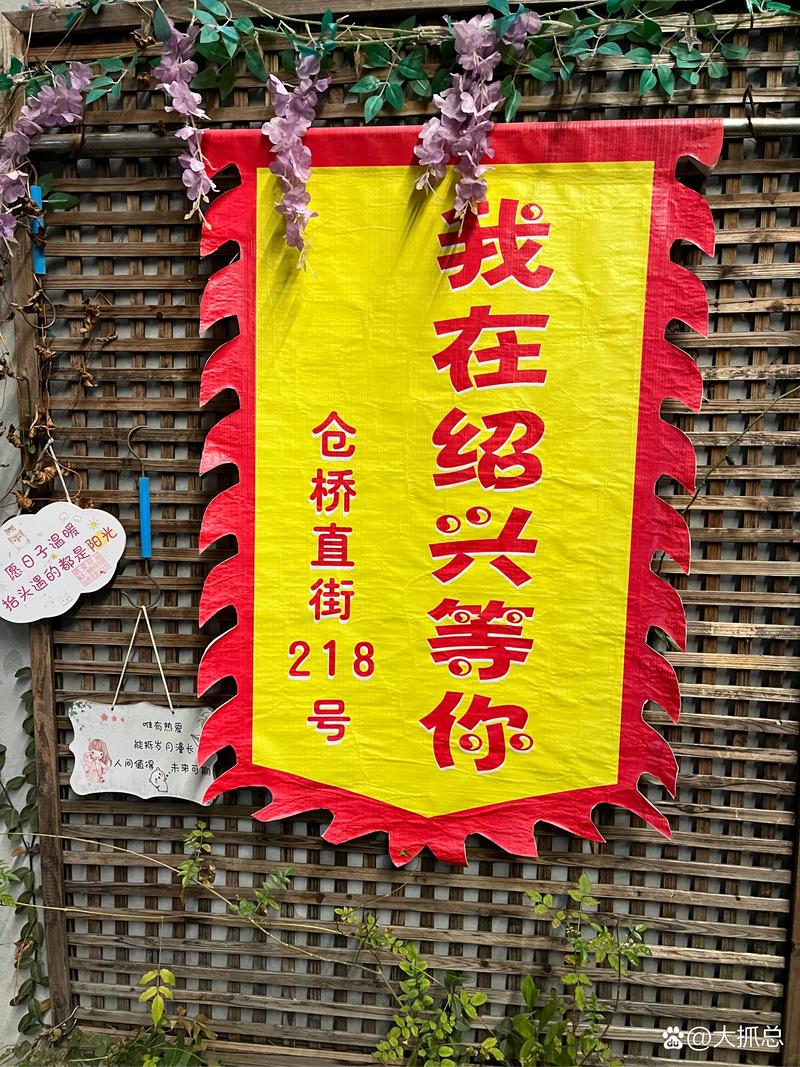 我在绍兴等你
仓桥直街
218
号
愿日子温暖
抬头遇的都是阳光
唯有热爱
能抵岁月漫长
人间值得
未来可期
@大抓总